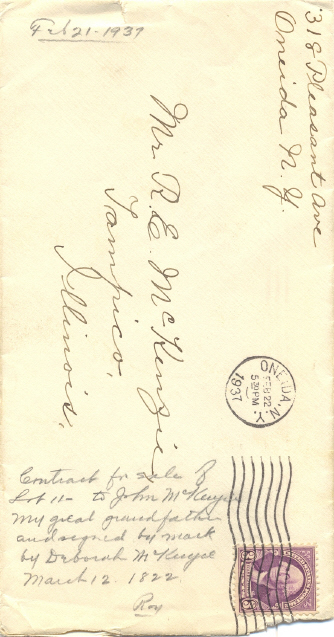 Feb 21-1937
318 Pleasant Ave
Oneida N.Y.
Mr. R.E. McKenzie
Tampico,
Illinois.
ONEIDA, N.Y.
FEB 22
5 30 PM
1937
Contract for sale of
Lot 11 - to John McKenzie
my great grandfather
and signed by mark
by Deborah McKenzie
March 12. 1822.
Roy